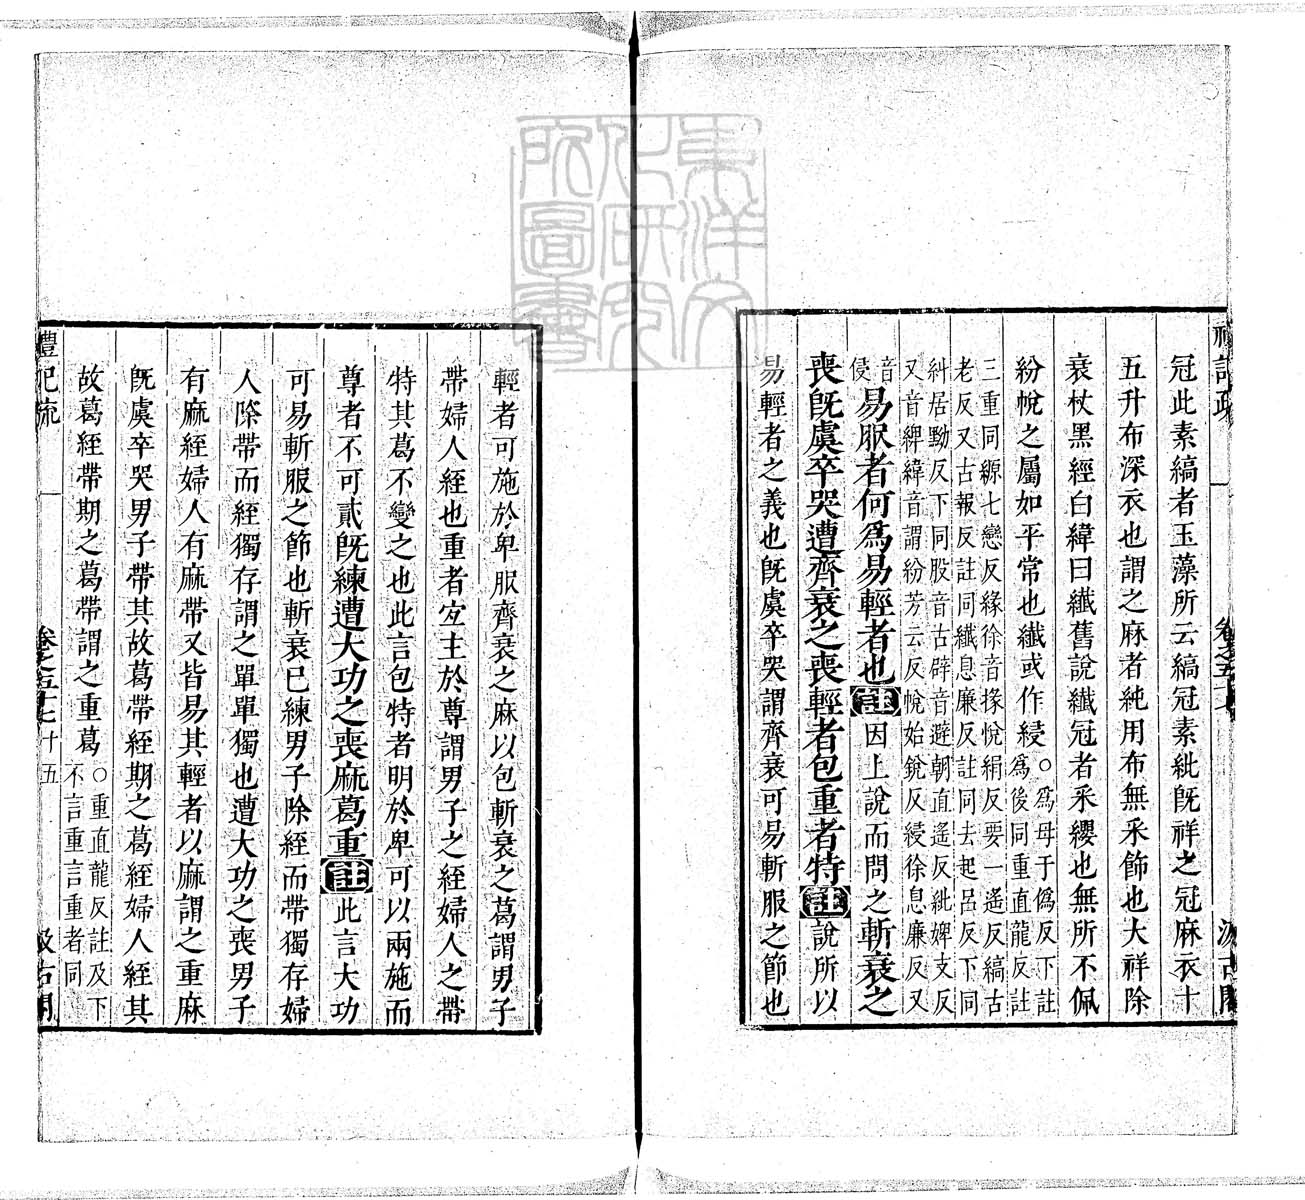 禮記疏 卷之五十七 汲古閣
冠此素縞者玉藻所云縞冠素紕旣祥之冠麻衣十
五升布深衣也謂之麻者純用布無采飾也大祥除
衰杖黑經白緯曰纖舊說纖冠者采纓也無所不佩
紛帨之屬如平常也纖或作綅
○爲母于僞反下註
爲後同重直龍反註
三重同縓七戀反緣徐音掾悅絹反要一遙反縞古
老反又古報反註同纖息廉反註同去起呂反下同
糾居黝反下同股音古辟音避朝直遙反紕婢支反
又音綼緯音謂紛芳云反帨始銳反綅徐息廉反又
音
侵
易服者何爲易輕者也註因上說而問之斬衰之
喪旣虞卒哭遭齊衰之喪輕者包重者特註說所以
易輕者之義也旣虞卒哭謂齊衰可易斬服之節也
輕者可施於卑服齊衰之麻以包斬衰之葛謂男子
帶婦人絰也重者宜主於尊謂男子之絰婦人之帶
特其葛不變之也此言包特者明於卑可以兩施而
尊者不可貳旣練遭大功之喪麻葛重註此言大功
可易斬服之節也斬衰已練男子除絰而帶獨存婦
人除帶而絰獨存謂之單單獨也遭大功之喪男子
有麻絰婦人有麻帶又皆易其輕者以麻謂之重麻
旣虞卒哭男子帶其故葛帶絰期之葛絰婦人絰其
故葛絰帶期之葛帶謂之重葛
○重直龍反註及下
不言重言重者同
禮記疏 卷之五十七 十五 汲古閣
東洋文化研究所圖書